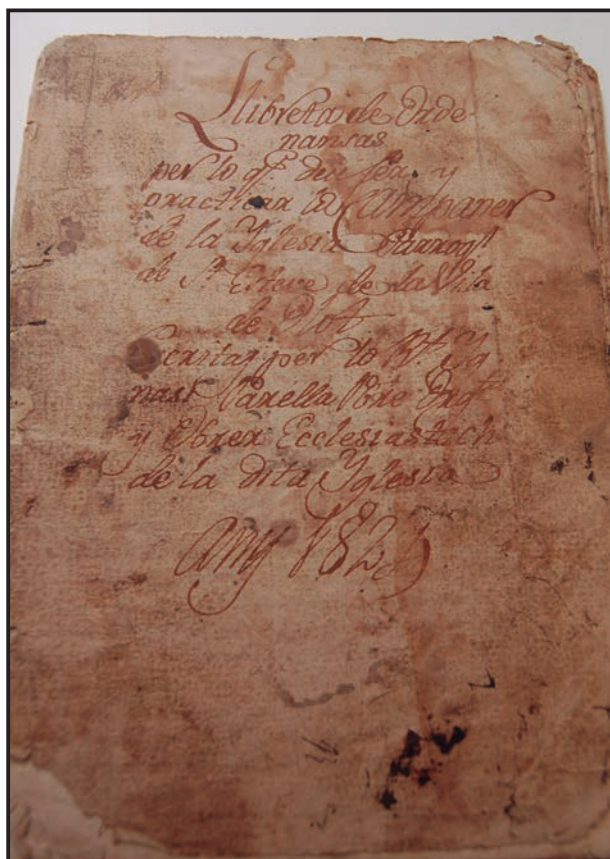 Llibreta de Orde
nansas
per lo qe deu fer, y
practicar lo Campaner
de la Yglesia Parrogl
de St Esteve de la Vila
de Olot
Escritas per lo Rt Ig
nasi Parella Pbre Orgt
y Obrer Ecclesiastich
de la dita Yglesia
any